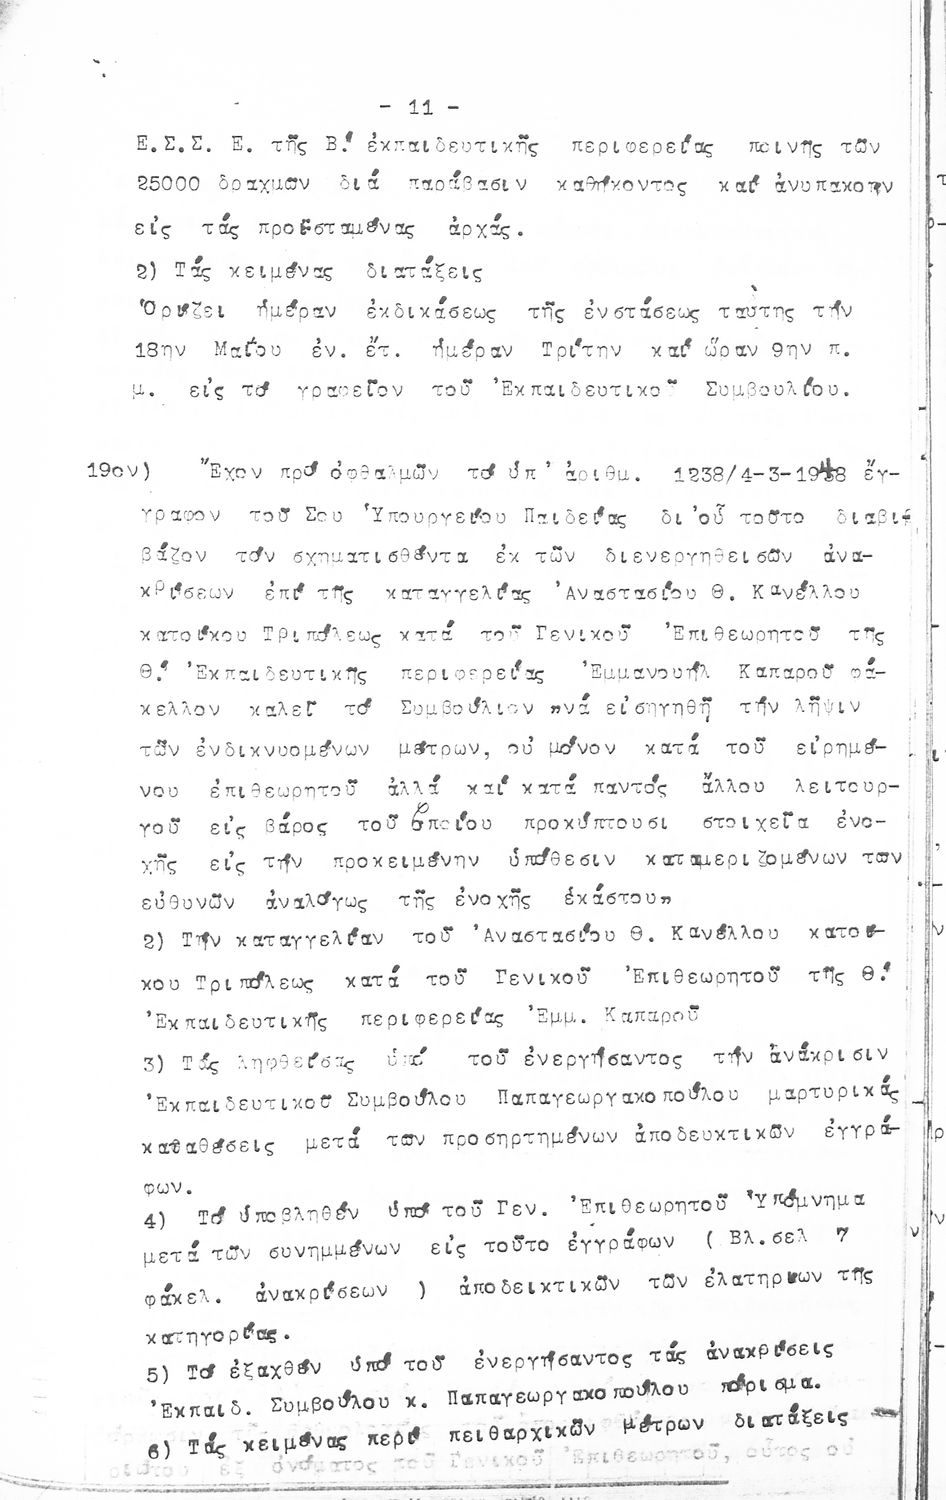 - 11 -
Ε.Σ.Σ. Ε. τῆς Β.' ἐκπαιδευτικῆς περιφερείας ποινῆς τῶν
25000 δραχμῶν διά παράβασιν καθήκοντος καί ἀνυπακοήν
εἰς τάς προϊσταμένας ἀρχάς.
2) Τάς κειμένας διατάξεις
Ὁρίζει ἡμέραν ἐκδικάσεως τῆς ἐνστάσεως ταύτης τήν
18ην Μαΐου ἐν. ἔτ. ἡμέραν Τρίτην καί ὥραν 9ην π.
μ. εἰς τό γραφεῖον τοῦ Ἐκπαιδευτικοῦ Συμβουλίου.
19ον) Ἔχον πρό ὀφθαλμῶν τό ὑπ' ἀριθμ. 1238/4-3-1948 ἔγ-
γραφον τοῦ Σου Ὑπουργείου Παιδείας δι'οὗ τοῦτο διαβι-
βάζον τόν σχηματισθέντα ἐκ τῶν διενεργηθεισῶν ἀνα-
κρίσεων ἐπί τῆς καταγγελίας Ἀναστασίου Θ. Κανέλλου
κατοίκου Τριπόλεως κατά τοῦ Γενικοῦ Ἐπιθεωρητοῦ τῆς
Θ.' Ἐκπαιδευτικῆς περιφερείας Ἐμμανουήλ Καπαροῦ φά-
κελλον καλεῖ τό Συμβούλιον "νά εἰσηγηθῇ τήν λῆψιν
τῶν ἐνδικνυομένων μέτρων, οὐ μόνον κατά τοῦ εἰρημέ-
νου ἐπιθεωρητοῦ ἀλλά καί κατά παντός ἄλλου λειτουρ-
γοῦ εἰς βάρος τοῦ ὁποίου προκύπτουσι στοιχεῖα ἐνο-
χῆς εἰς τήν προκειμένην ὑπόθεσιν καταμεριζομένων τῶν
εὐθυνῶν ἀναλόγως τῆς ἐνοχῆς ἑκάστου"
2) Τήν καταγγελίαν τοῦ Ἀναστασίου Θ. Κανέλλου κατοί-
κου Τριπόλεως κατά τοῦ Γενικοῦ Ἐπιθεωρητοῦ τῆς Θ.'
Ἐκπαιδευτικῆς περιφερείας Ἐμμ. Καπαροῦ
3) Τάς ληφθείσας ὑπό τοῦ ἐνεργήσαντος τήν ἀνάκρισιν
Ἐκπαιδευτικοῦ Συμβούλου Παπαγεωργακοπούλου μαρτυρικάς
καταθέσεις μετά τῶν προσηρτημένων ἀποδευκτικῶν ἐγγρά-
φων.
4) Τό ὑποβληθέν ὑπό τοῦ Γεν. Ἐπιθεωρητοῦ Ὑπόμνημα
μετά τῶν συνημμένων εἰς τοῦτο ἐγγράφων ( Βλ.σελ 7
φάκελ. ἀνακρίσεων ) ἀποδεικτικῶν τῶν ἐλατηρίων τῆς
κατηγορίας.
5) Τό ἐξαχθέν ὑπό τοῦ ἐνεργήσαντος τάς ἀνακρίσεις
Ἐκπαιδ. Συμβούλου κ. Παπαγεωργακοπούλου πόρισμα.
6) Τάς κειμένας περί πειθαρχικῶν μέτρων διατάξεις